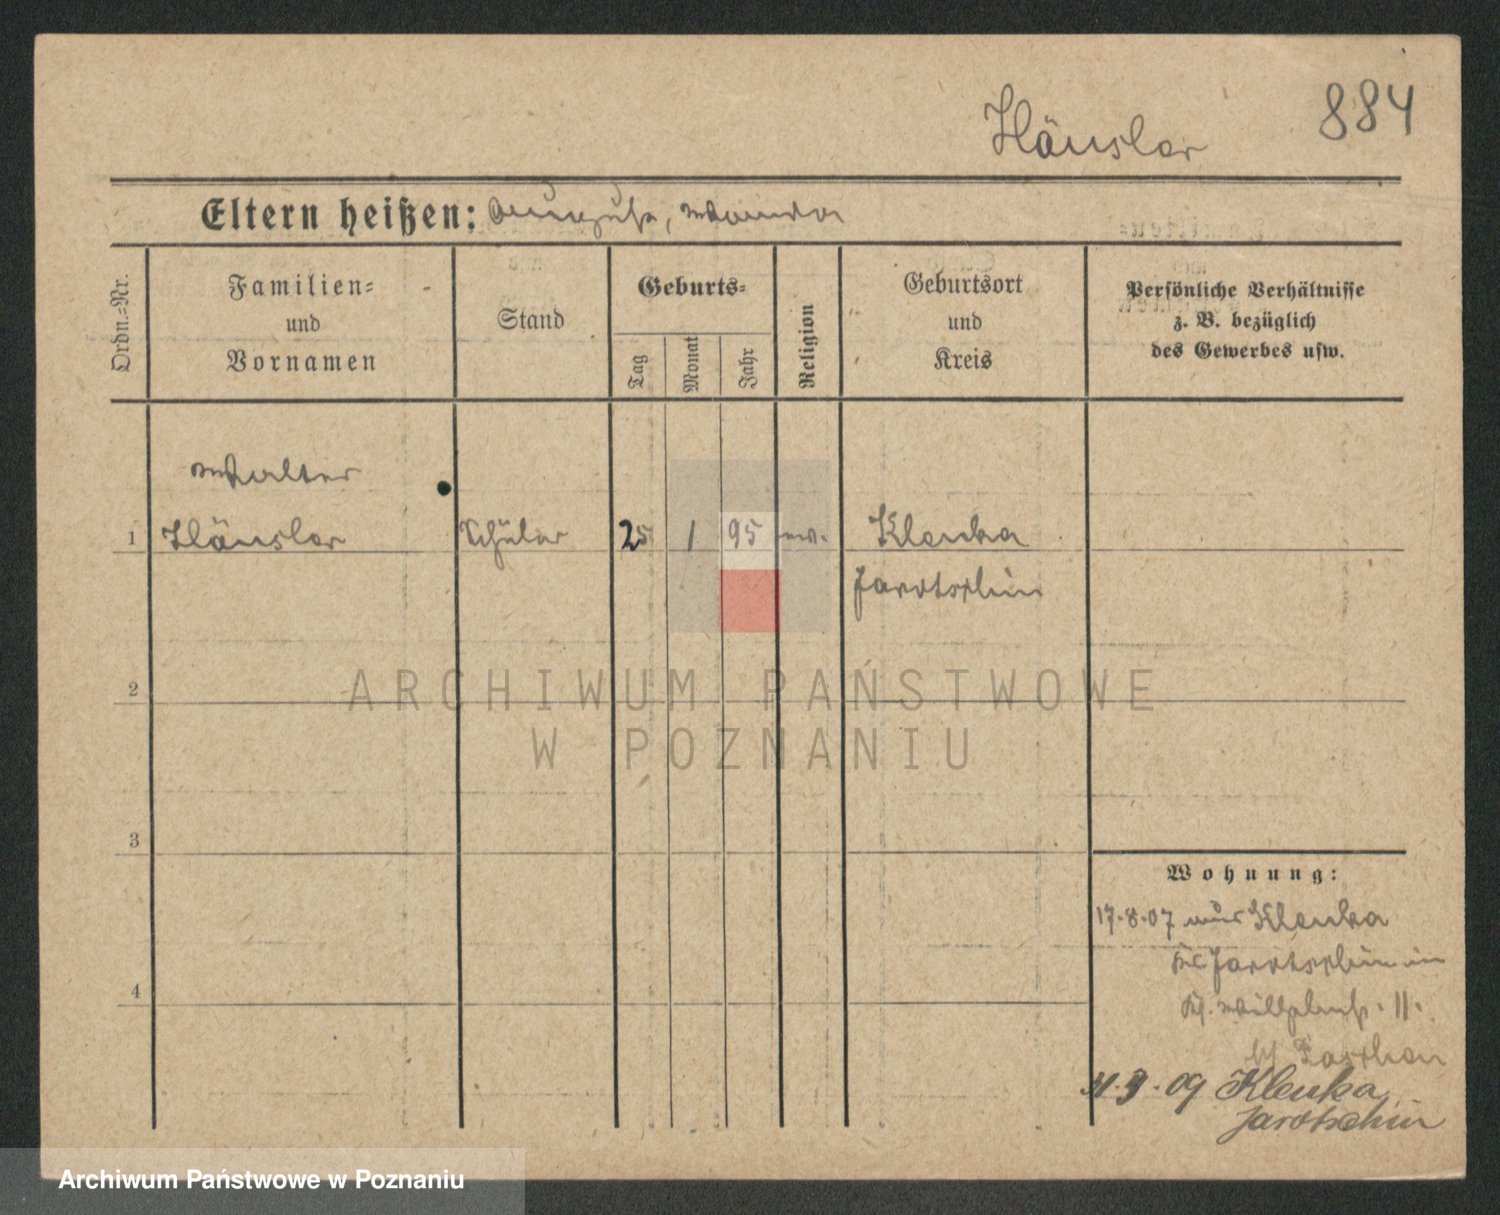 Häusler 884
Eltern heißen: August, Wanda
Ordn.=Nr.
Familien=
und
Vornamen
Stand
Geburts=
Tag
Monat
Jahr
Religion
Geburtsort
und
Kreis
Persönliche Verhältnisse
z. B. bezüglich
des Gewerbes usw.
Walter
1 Häusler Schüler 25 1 95 ev. Klenka
Jarotschin
2
ARCHIWUM PAŃSTWOWE
W POZNANIU
3
Wohnung:
17.8.07 aus Klenka
Jarotschin in
4
11.
3.09 Klenka
Jarotschin
Archiwum Państwowe w Poznaniu